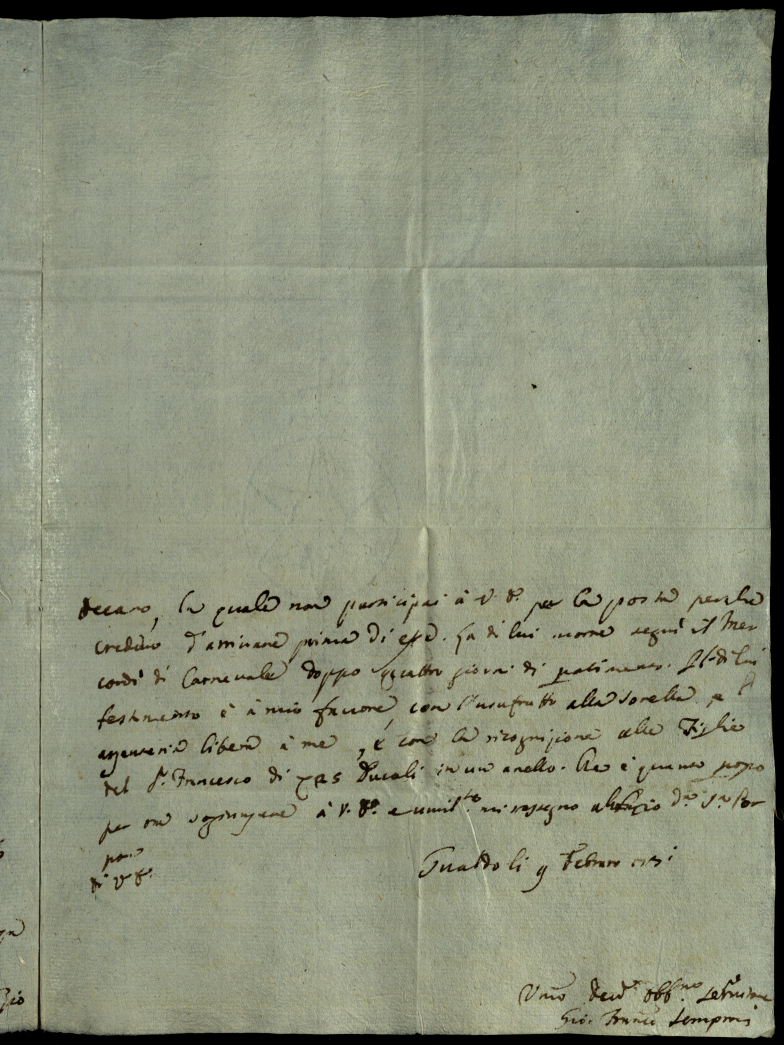 Decano, la quale non participai à V. E. per la posta perche
credevo d'arrivare prima di essa. La di lui morte seguì il Mer
cordì di Carnevale doppo quattro giorni di patimento. Il di lui
testamento è à mio favore, con l'usufrutto alla Sorella, e l'
azienda libera à me, è con la ricognizione alla Figlia
del Sr. Francesco di Ducati in un anello. Che è quanto posso
per ora soggiungere à V. E. e umilte. mi rassegno
di V. E.
Gualdo li 9 Febraro
Umo Devmo Obbmo Servitore
Gio. Franco Semproni